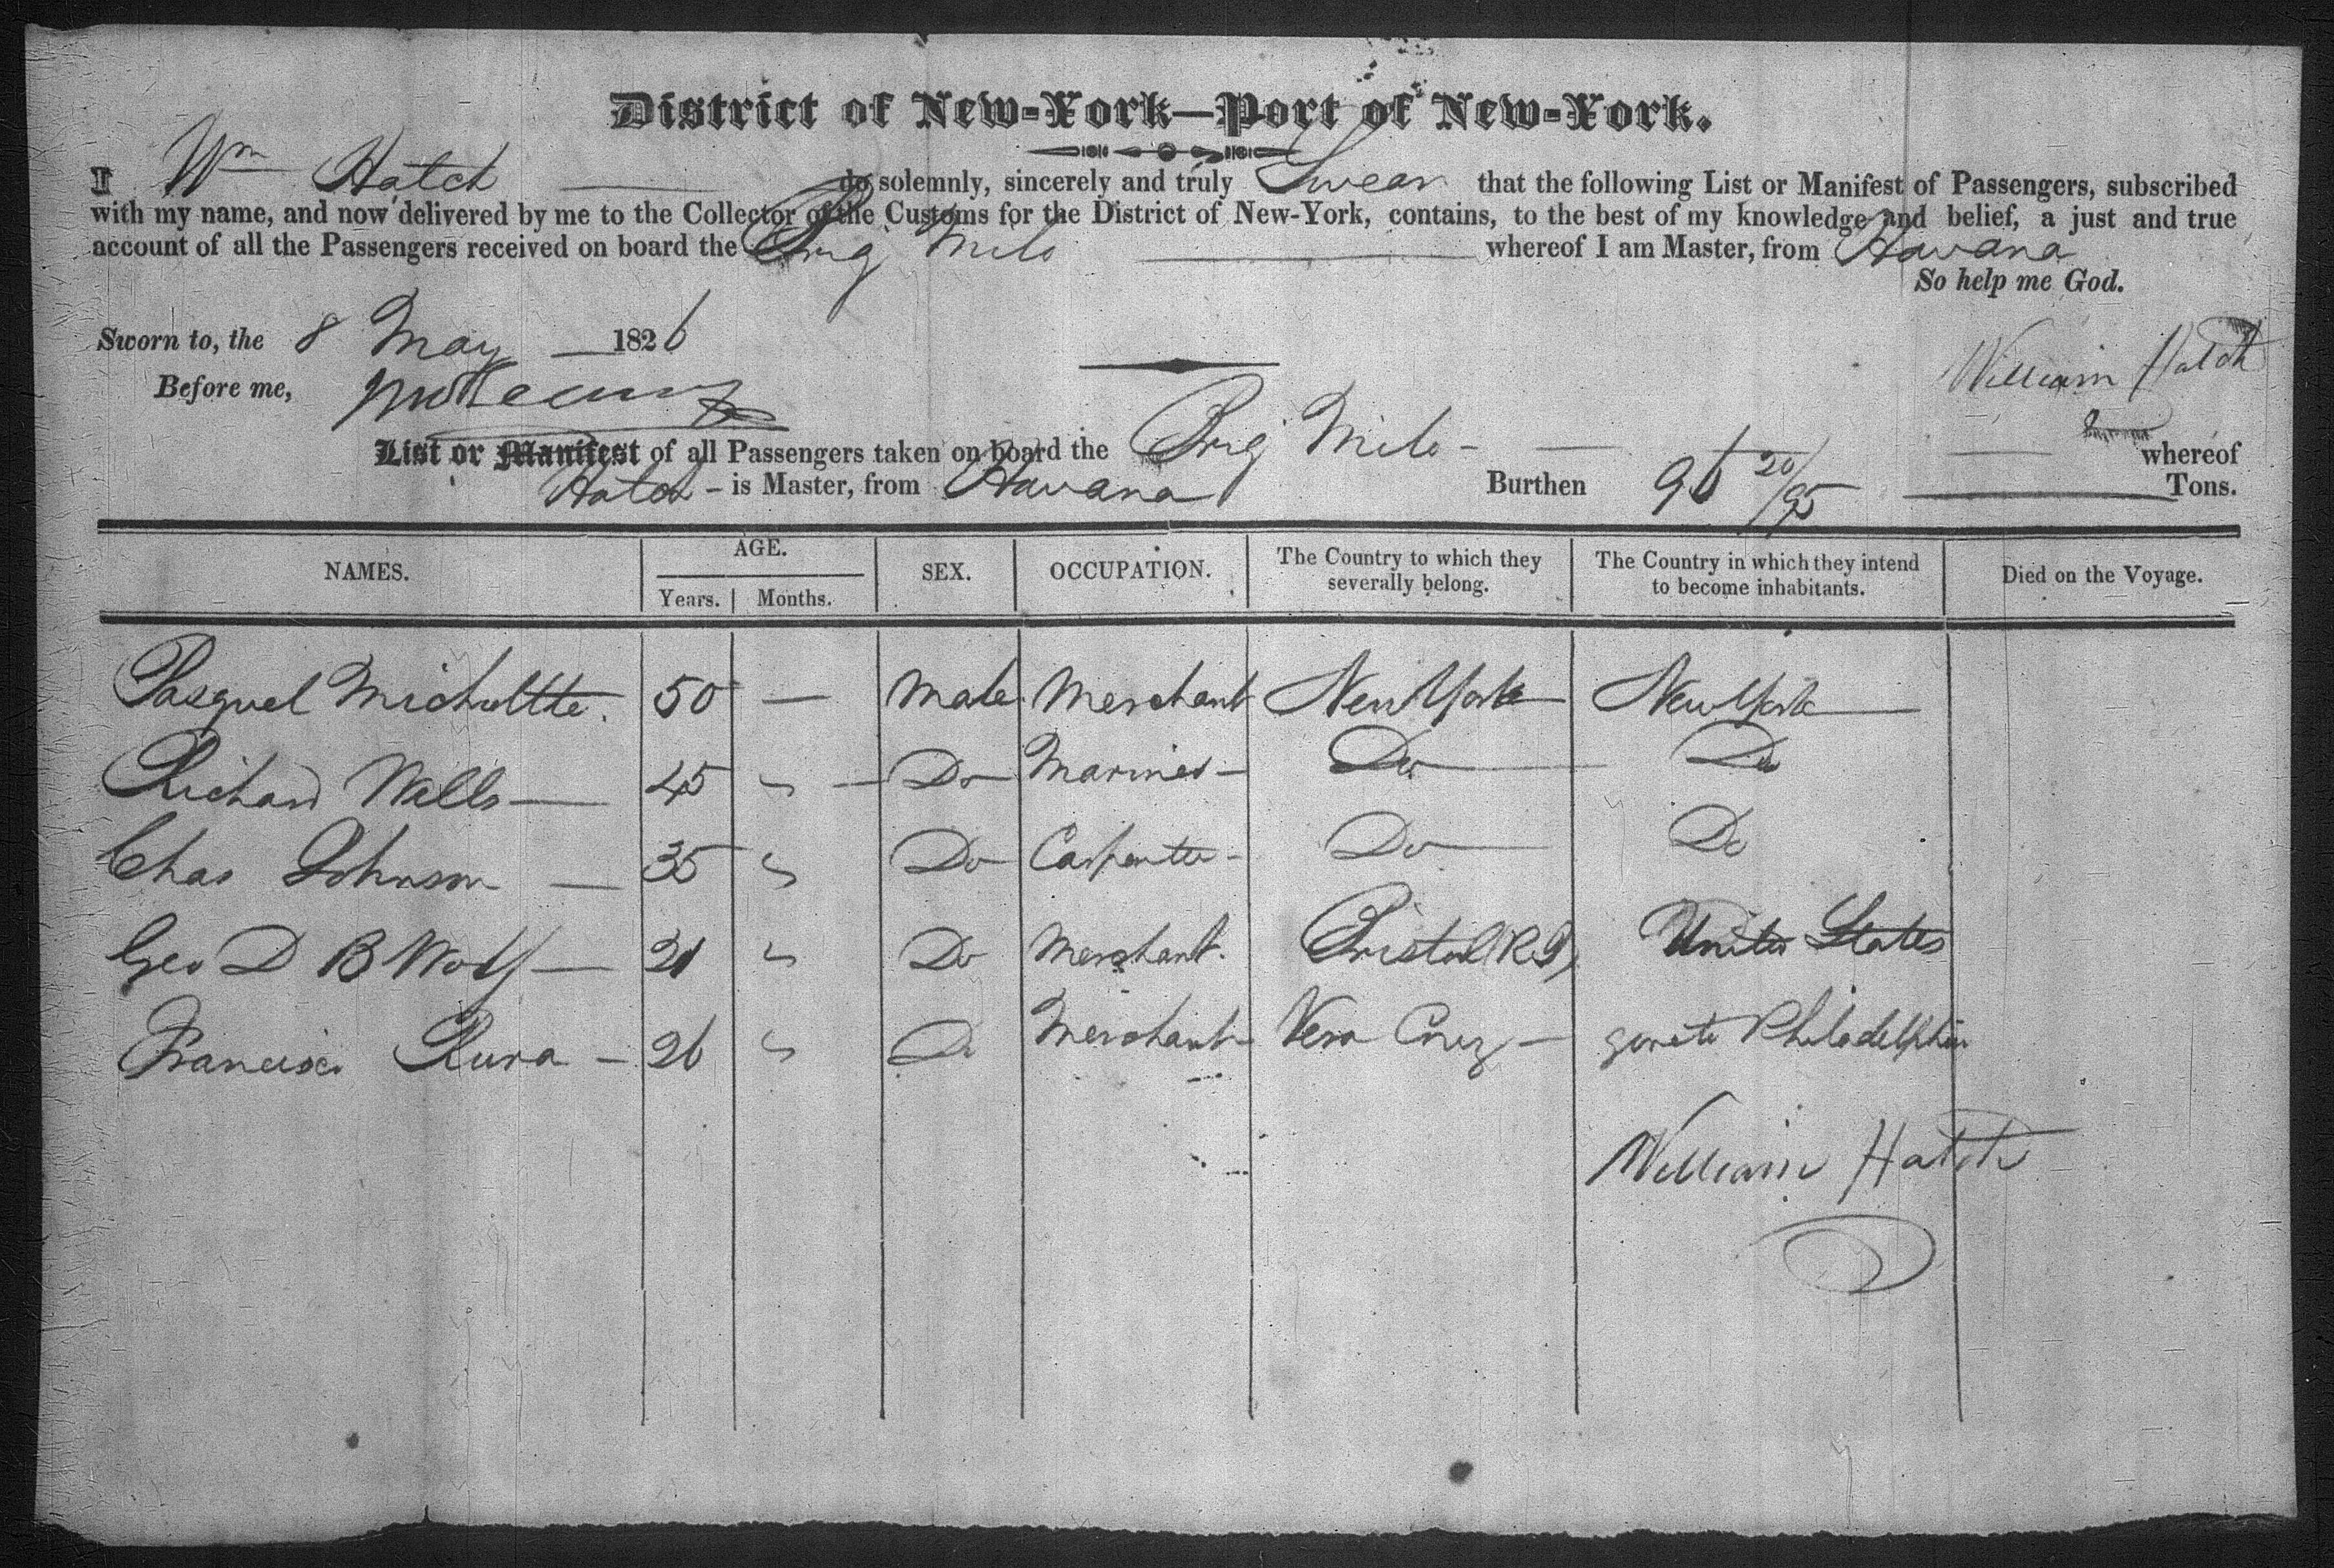 District of New-York—Port of New-York.
I Wm Hatch do solemnly, sincerely and truly Swear that the following List or Manifest of Passengers, subscribed
with my name, and now delivered by me to the Collector of the Customs for the District of New-York, contains, to the best of my knowledge and belief, a just and true
account of all the Passengers received on board the Brig Milo whereof I am Master, from Havana
So help me God.
Sworn to, the 8 May 1826
William Hatch
Before me,
List or Manifest of all Passengers taken on board the Brig Milo whereof
Hatch is Master, from Havana Burthen 96 20/95 Tons.
NAMES. AGE. SEX. OCCUPATION. The Country to which they severally belong. The Country in which they intend to become inhabitants. Died on the Voyage.
Years. Months.
Pasquel 50 — Male Merchant New York New York
Richard Wells 45 " Do Mariner Do Do
Chas Johnson 35 " Do Carpenter Do Do
Geo D B Wolf 21 " Do Merchant Bristol (R I) United States
Francisco 26 " Do Merchant Vera Cruz Philadelphia
William Hatch